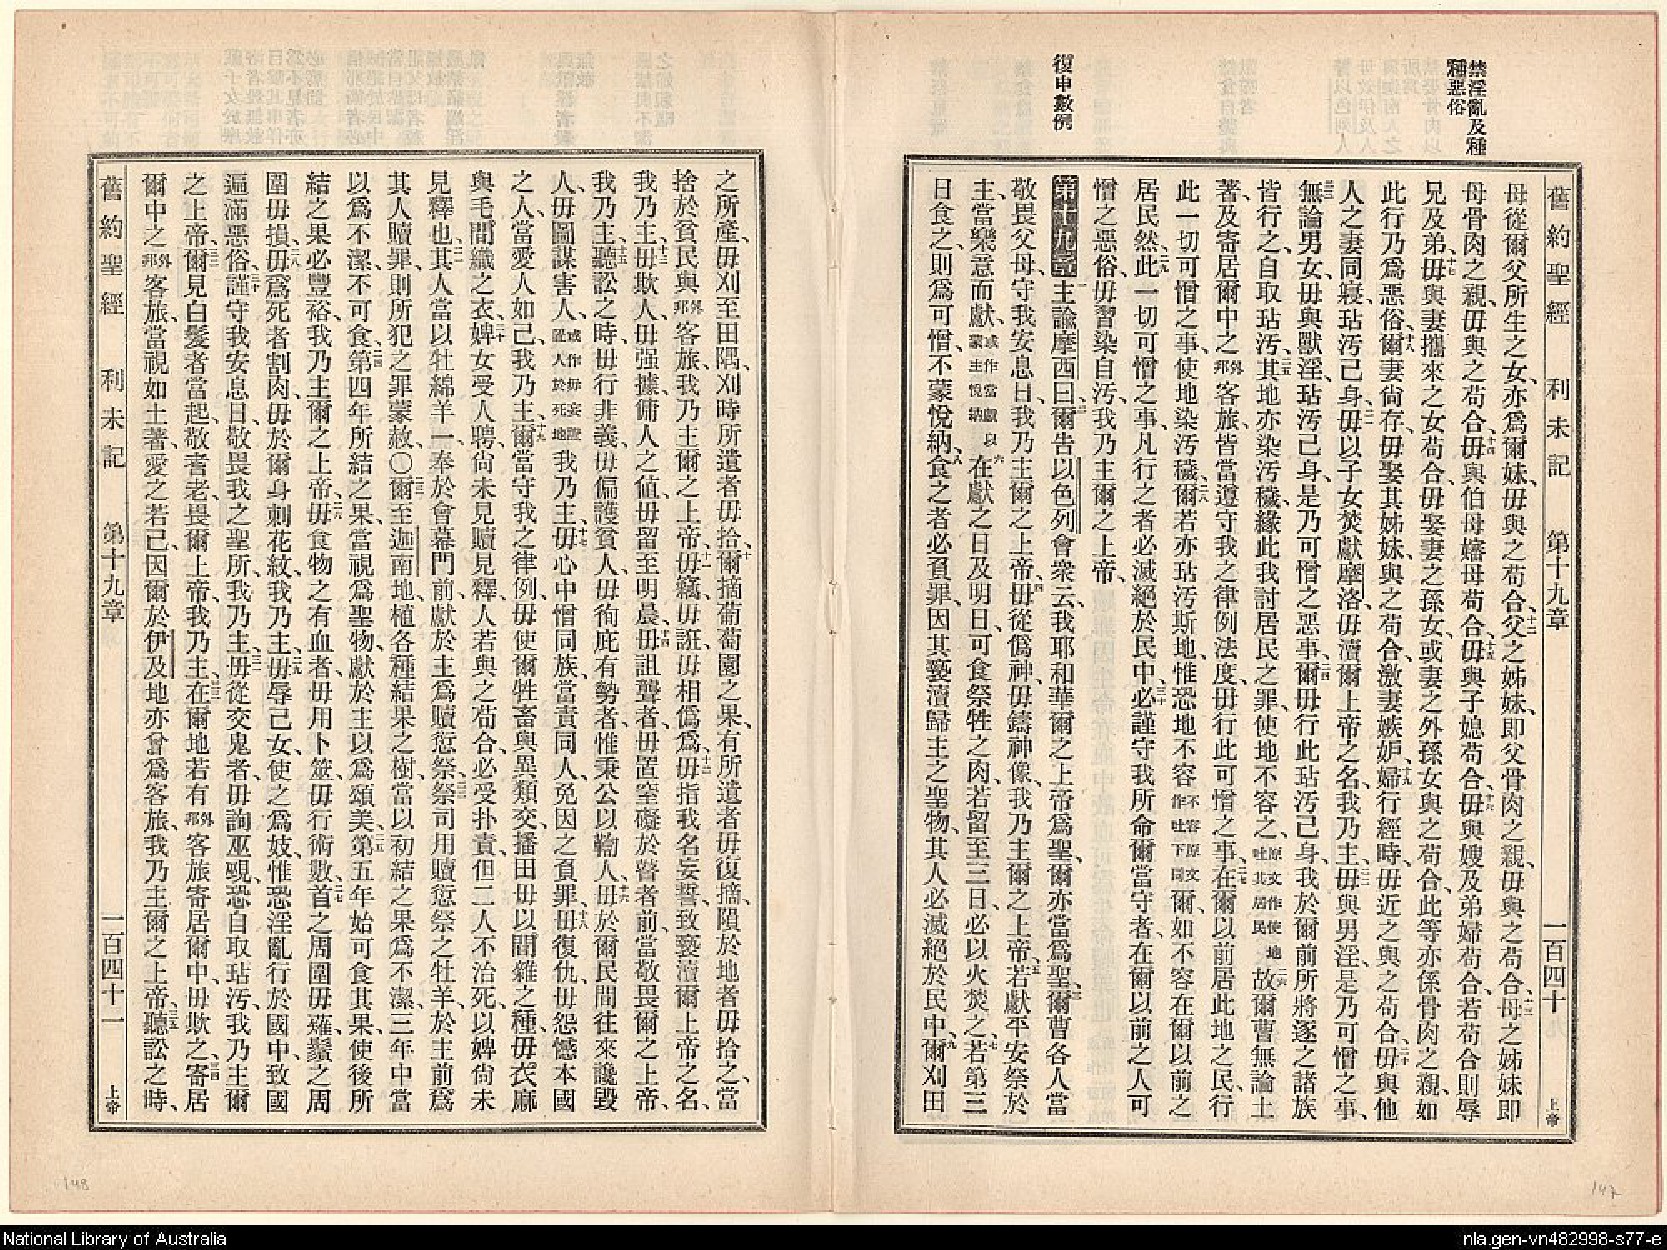 禁淫亂及種
種惡俗
復申數例
舊約聖經 利未記 第十九章 一百四十 上帝
母從爾父所生之女、亦爲爾妹、毋與之苟合、十二父之姊妹、卽父骨肉之親、毋與之苟合、十三母之姊妹卽
母骨肉之親、毋與之苟合、十四毋與伯母嬸母苟合、十五毋與子媳苟合、十六毋與嫂及弟婦苟合、若苟合則辱
兄及弟、十七毋與妻攜來之女苟合、毋娶妻之孫女、或妻之外孫女與之苟合、此等亦係骨肉之親、如
此行乃爲惡俗、十八爾妻尙存、毋娶其姊妹、與之苟合、激妻嫉妒、十九婦行經時、毋近之與之苟合、二十毋與他
人之妻同寢、玷汚己身、二一毋以子女焚獻摩洛、毋瀆爾上帝之名、我乃主、二二毋與男淫、是乃可憎之事、
二三無論男女、毋與獸淫、玷汚己身、是乃可憎之惡事、二四爾毋行此玷汚己身、我於爾前所將逐之諸族
皆行之、自取玷汚、二五其地亦染汚穢、緣此我討居民之罪、使地不容之、原文作使地吐其居民 二六故爾曹無論土
著、及寄居爾中之外邦客旅、皆當遵守我之律例法度、毋行此可憎之事、二七在爾以前居此地之民、行
此一切可憎之事、使地染汚穢、二八爾若亦玷汚斯地、惟恐地不容不容原文作吐下同爾、如不容在爾以前之
居民然、二九此一切可憎之事、凡行之者必滅絕於民中、三十必謹守我所命爾當守者、在爾以前之人可
憎之惡俗、毋習染自汚、我乃主爾之上帝、
第十九章 一主諭摩西曰、二爾告以色列會衆云、我耶和華爾之上帝爲聖、爾亦當爲聖、三爾曹各人當
敬畏父母、守我安息日、我乃主爾之上帝、四毋從僞神、毋鑄神像、我乃主爾之上帝、五若獻平安祭於
主、當樂意而獻、或作當獻以蒙主悅納 六在獻之日及明日可食祭牲之肉、若留至三日、必以火焚之、七若第三
日食之、則爲可憎、不蒙悅納、八食之者必負罪、因其褻瀆歸主之聖物、其人必滅絕於民中、九爾刈田
之所產、毋刈至田隅、刈時所遺者毋拾、十爾摘葡萄園之果、有所遺者毋復摘、隕於地者毋拾之、當
捨於貧民與外邦客旅、我乃主爾之上帝、十一毋竊、毋誑、毋相僞爲、十二毋指我名妄誓、致褻瀆爾上帝之名、
我乃主、十三毋欺人、毋强據、傭人之値、毋留至明晨、十四毋詛聾者、毋置窒礙於瞽者前、當敬畏爾之上帝、
我乃主、十五聽訟之時、毋行非義、毋偏護貧人、毋徇庇有勢者、惟秉公以鞫人、十六毋於爾民間往來讒毀
人、毋圖謀害人、或作毋妄證陷人於死地 我乃主、十七毋心中憎同族、當責同人、免因之負罪、十八毋復仇、毋怨憾本國
之人、當愛人如己、我乃主、十九爾當守我之律例、毋使爾牲畜與異類交、播田毋以間雜之種、毋衣麻
與毛間織之衣、二十婢女受人聘、尙未見贖見釋、人若與之苟合、必受扑責、但二人不治死、以婢尙未
見釋也、二一其人當以牡綿羊一、奉於會幕門前、獻於主爲贖愆祭、二二祭司用贖愆祭之牡羊、於主前爲
其人贖罪、則所犯之罪蒙赦、○二三爾至迦南地、植各種結果之樹、當以初結之果爲不潔、三年中當
以爲不潔、不可食、二四第四年所結之果、當視爲聖物、獻於主以爲頌美、二五第五年始可食其果、使後所
結之果必豐裕、我乃主爾之上帝、二六毋食物之有血者、毋用卜筮、毋行術數、二七首之周圍毋薙、鬚之周
圍毋損、二八毋爲死者割肉、毋於爾身刺花紋、我乃主、二九毋辱己女、使之爲妓、惟恐淫亂行於國中、致國
遍滿惡俗、三十謹守我安息日、敬畏我之聖所、我乃主、三一毋從交鬼者、毋詢巫覡、恐自取玷汚、我乃主爾
之上帝、三二爾見白髮者當起、敬耆老、畏爾上帝、我乃主、三三在爾地若有外邦客旅寄居爾中、毋欺之、三四寄居
爾中之外邦客旅、當視如土著、愛之若己、因爾於伊及地亦曾爲客旅、我乃主爾之上帝、三五聽訟之時、
舊約聖經 利未記 第十九章 一百四十一 上帝
148
147
National Library of Australia
nla.gen-vn482998-s77-e